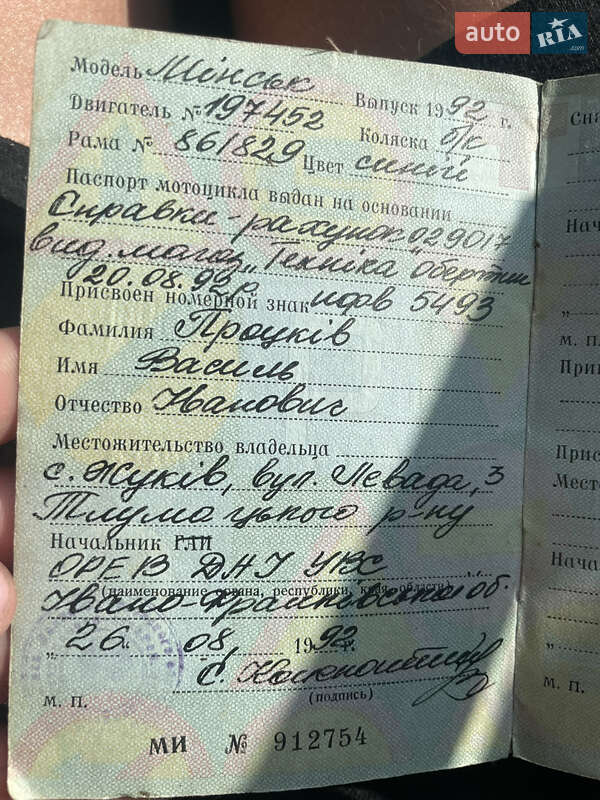 auto RIA .com
Модель Мінськ Выпуск 1992 г.
Двигатель № 197452 Коляска б/к
Рама № 861829 Цвет синій
Паспорт мотоцикла выдан на основании
Справки-рахунок 029017
вид. магаз. "Техніка" Обертин
20.08.92р.
Присвоен номерной знак ифв 5493
Фамилия Процків
Имя Василь
Отчество Іванович
Местожительство владельца
с. Жуків, вул. Левада, 3
Тлумацького р-ну
Начальник ГАИ
ОРЕВ ДАІ УВС
(наименование органа, республики, края, области)
Івано-Франківської об.
„ 26 " 08 1992 г.
С.
(подпись)
м. п.
МИ № 912754
Сна
Нач
„
м. п
При
Прис
Мест
Нача
„
м. п.